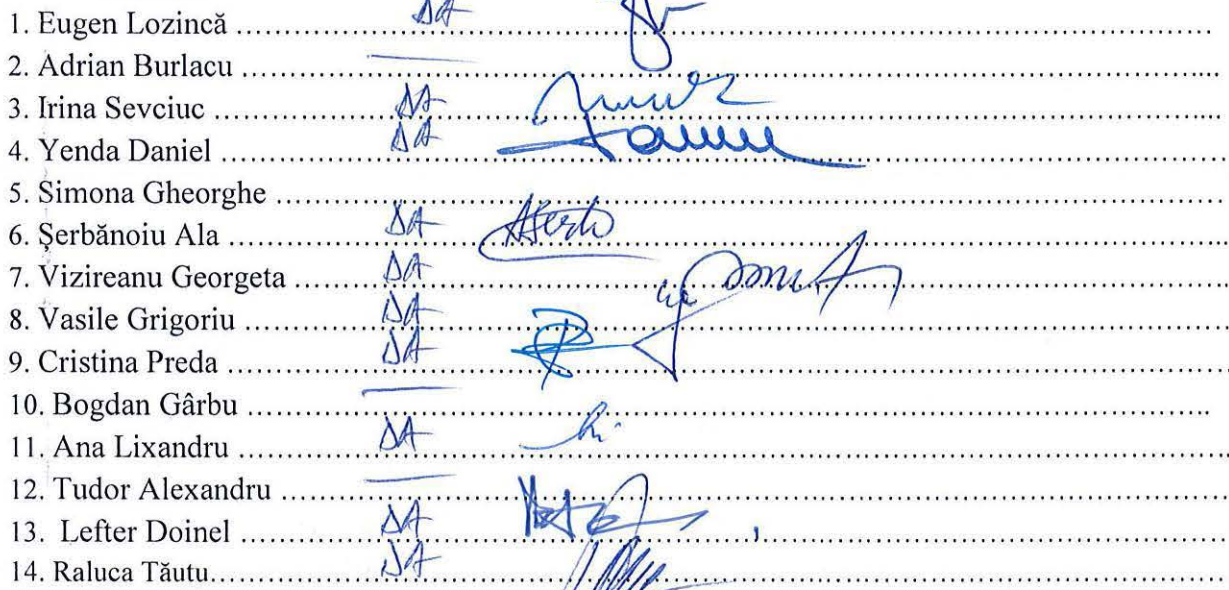 1. Eugen Lozincă ........ DA ........
2. Adrian Burlacu ........ — ........
3. Irina Sevciuc ........ DA ........
4. Yenda Daniel ........ DA ........
5. Simona Gheorghe ........
6. Șerbănoiu Ala ........ DA ........
7. Vizireanu Georgeta ........ DA ........
8. Vasile Grigoriu ........ DA ........
9. Cristina Preda ........ DA ........
10. Bogdan Gârbu ........ — ........
11. Ana Lixandru ........ DA ........
12. Tudor Alexandru ........ — ........
13. Lefter Doinel ........ DA ........
14. Raluca Tăutu ........ DA ........